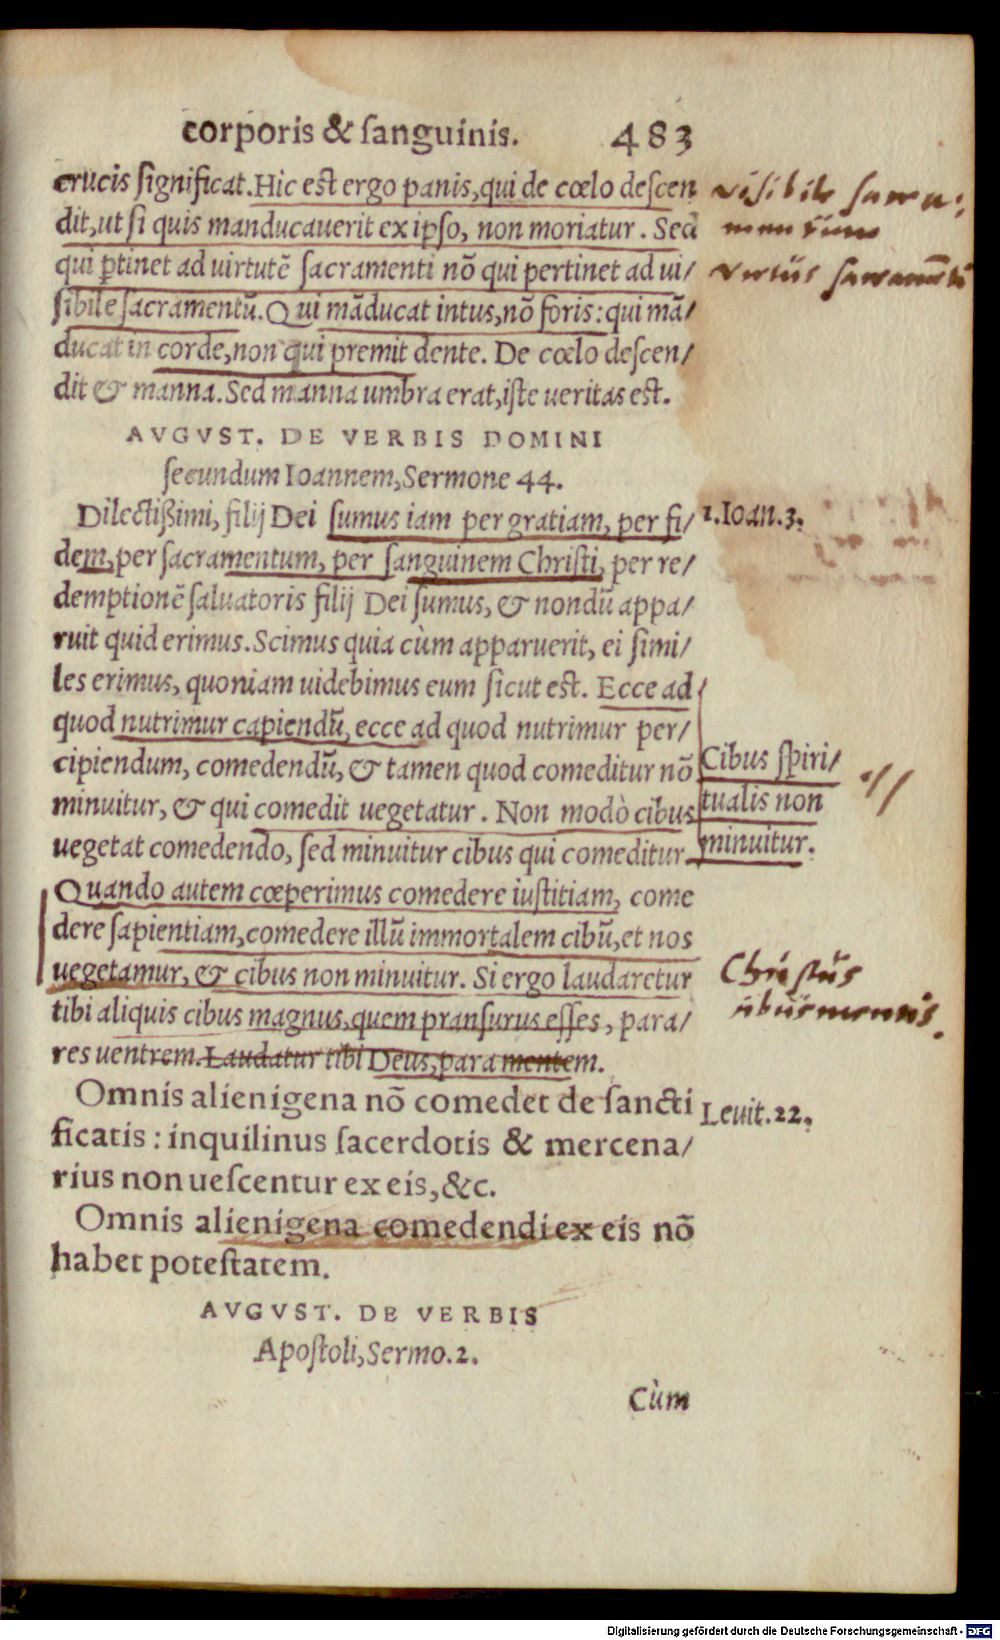 corporis & sanguinis. 483
crucis significat. Hic est ergo panis, qui de cœlo descen
dit, ut si quis manducauerit ex ipso, non moriatur. Sed
qui ꝑtinet ad uirtutẽ sacramenti nõ qui pertinet ad ui/
sibile sacramentũ. Qui mãducat intus, nõ foris: qui mã/
ducat in corde, non qui premit dente. De cœlo descen/
dit & manna. Sed manna umbra erat, iste ueritas est.
visibile sacra:
mentum
virtus sacramẽti
AVGVST. DE VERBIS DOMINI
secundum Ioannem, Sermone 44.
Dilectißimi, filij Dei sumus iam per gratiam, per fi/
dem, per sacramentum, per sanguinem Christi, per re/
demptionẽ saluatoris filij Dei sumus, & nondũ appa/
ruit quid erimus. Scimus quia cùm apparuerit, ei simi/
les erimus, quoniam uidebimus eum sicut est. Ecce ad
quod nutrimur capiendũ, ecce ad quod nutrimur per/
cipiendum, comedendũ, & tamen quod comeditur nõ
minuitur, & qui comedit uegetatur. Non modò cibus
uegetat comedendo, sed minuitur cibus qui comeditur.
Quando autem cœperimus comedere iustitiam, come
dere sapientiam, comedere illũ immortalem cibũ, et nos
uegetamur, & cibus non minuitur. Si ergo laudaretur
tibi aliquis cibus magnus, quem pransurus esses, para/
res uentrem. Laudatur tibi Deus, para mentem.
1. Ioan. 3.
Cibus spiri/
tualis non
minuitur.
Christus
cibus mentis.
Omnis alienigena nõ comedet de sancti
ficatis: inquilinus sacerdotis & mercena/
rius non uescentur ex eis, &c.
Levit. 22.
Omnis alienigena comedendi ex eis nõ
habet potestatem.
AVGVST. DE VERBIS
Apostoli, Sermo. 2.
Cùm
Digitalisierung gefördert durch die Deutsche Forschungsgemeinschaft - DFG